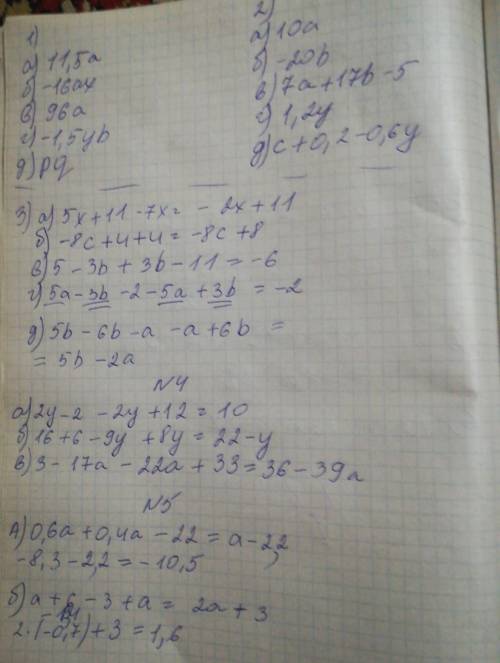 1)
а) 11,5a
б) -16ax
в) 96a
г) -1,5yb
д) pq
2)
а) 10a
б) -20b
в) 7a+17b-5
г) 1,2y
д) c+0,2-0,6y
3) а) 5x+11-7x= -2x+11
б) -8c+4+4= -8c+8
в) 5-3b+3b-11=-6
г) 5a-3b-2-5a+3b=-2
д) 5b-6b-a-a+6b=
=5b-2a
N4
а) 2y-2-2y+12=10
б) 16+6-9y+8y=22-y
в) 3-17a-22a+33=36-39a
N5
А) 0,6a+0,4a-22=a-22
-8,3-2,2=-10,5
б) a+6-3+a= 2a+3
2·(-0,7)+3=1,6